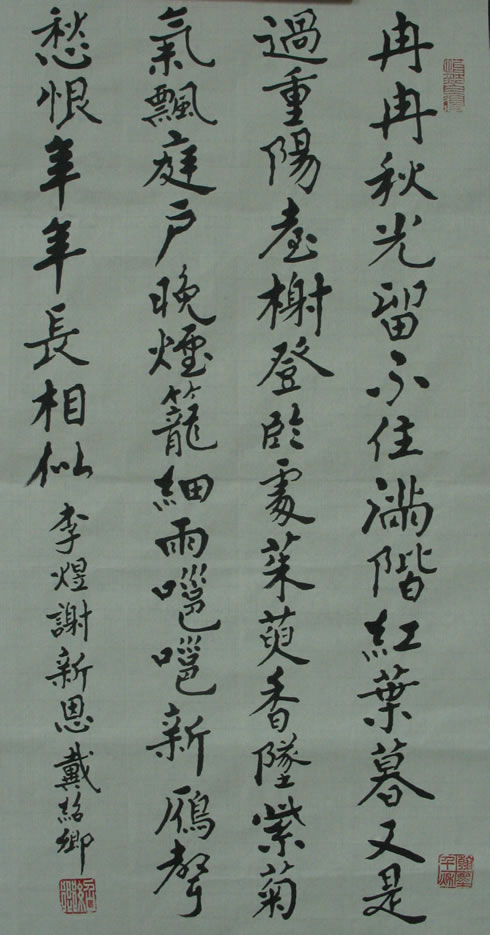 冉冉秋光留不住滿階紅葉暮又是
過重陽臺榭登臨處茱萸香墜紫菊
氣飄庭戶晚煙籠細雨嗈嗈新雁聲
愁恨年年長相似
李煜謝新恩戴紹卿